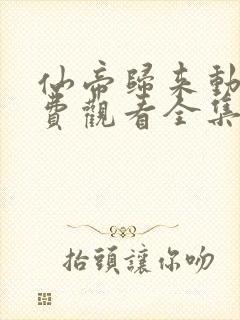 仙帝歸來動
費觀看全集
抬頭讓你吻